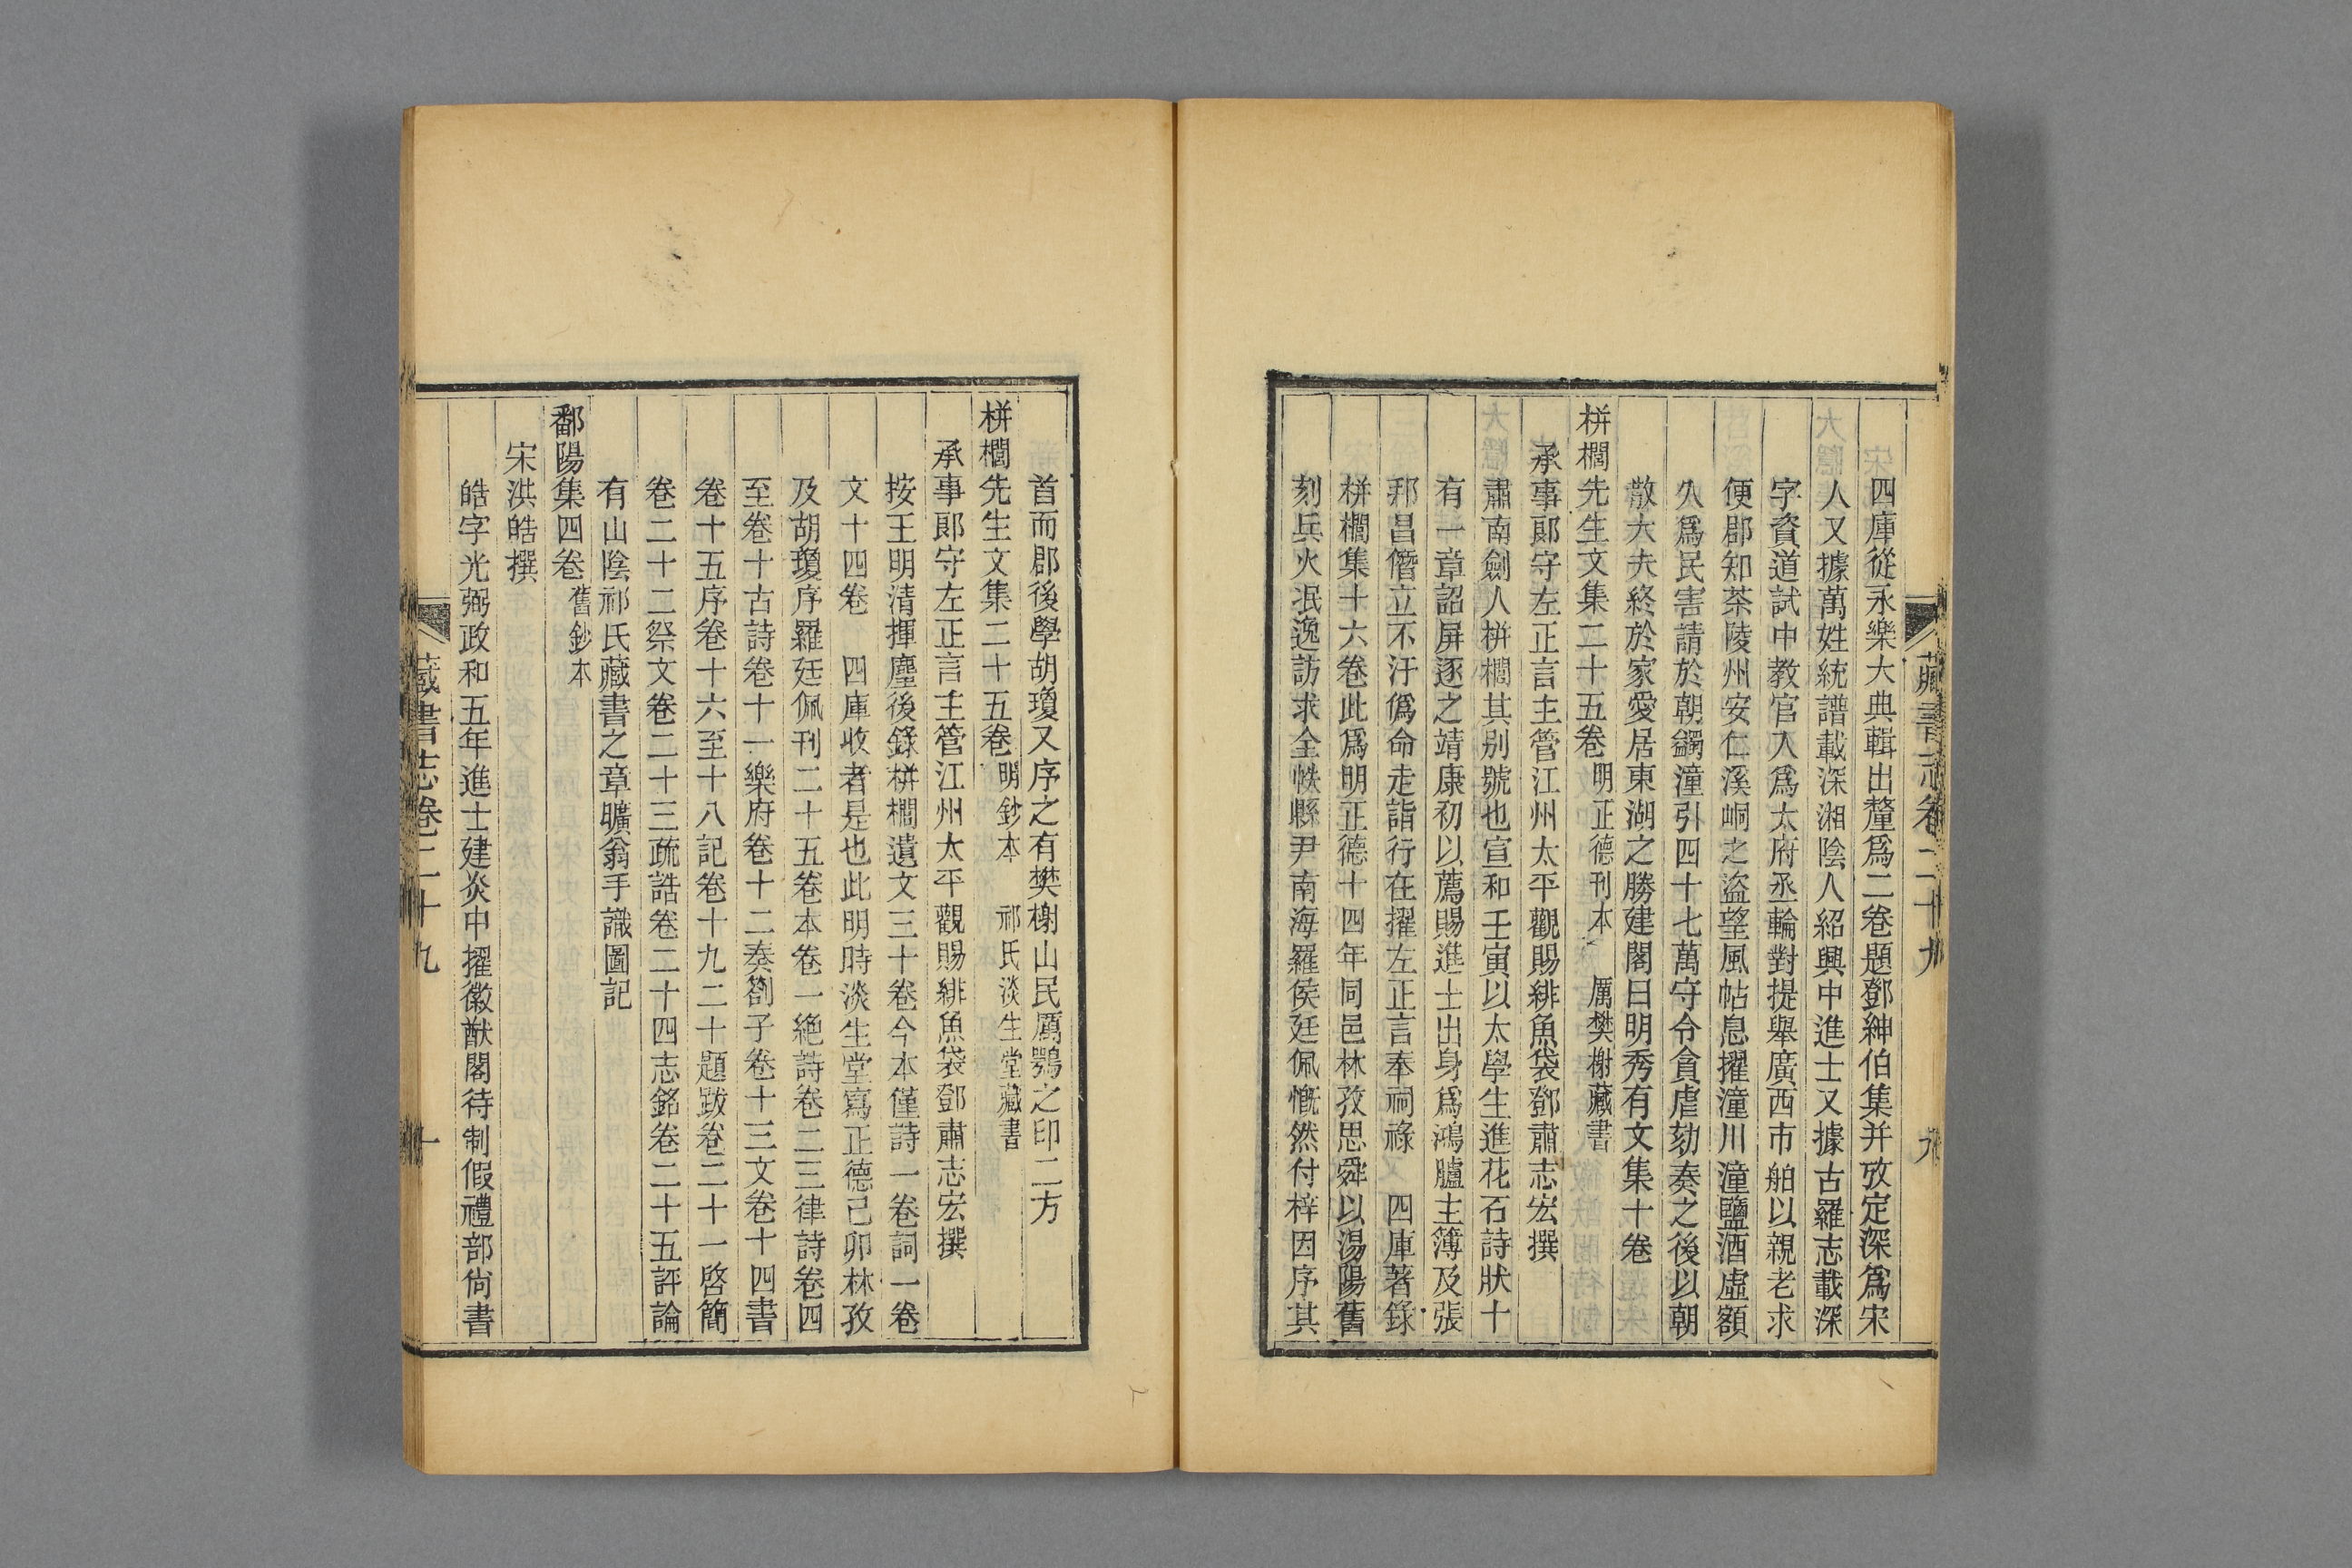 藏書志卷二十九
九
四庫從永樂大典輯出釐爲二卷題鄧紳伯集并攷定深爲宋
人又據萬姓統譜載深湘陰人紹興中進士又據古羅志載深
字資道試中教官入爲太府丞輪對提舉廣西市舶以親老求
便郡知茶陵州安仁溪峒之盜望風帖息擢潼川潼鹽酒虛額
久爲民害請於朝蠲潼引四十七萬守令貪虐劾奏之後以朝
散大夫終於家愛居東湖之勝建閣曰明秀有文集十卷
栟櫚先生文集二十五卷 明正德刊本 厲樊榭藏書
承事郞守左正言主管江州太平觀賜緋魚袋鄧肅志宏撰
肅南劍人栟櫚其别號也宣和壬寅以太學生進花石詩狀十
有一章詔屏逐之靖康初以薦賜進士出身爲鴻臚主簿及張
邦昌僭立不汙僞命走詣行在擢左正言奉祠祿 四庫著錄
栟櫚集十六卷此爲明正德十四年同邑林孜思舜以湯陽舊
刻兵火泯逸訪求全帙縣尹南海羅侯廷佩慨然付梓因序其
首而郡後學胡瓊又序之有樊榭山民厲鶚之印二方
栟櫚先生文集二十五卷 明鈔本 祁氏淡生堂藏書
承事郞守左正言主管江州太平觀賜緋魚袋鄧肅志宏撰
按王明清揮麈後錄栟櫚遺文三十卷今本僅詩一卷詞一卷
文十四卷 四庫收者是也此明時淡生堂寫正德己卯林孜
及胡瓊序羅廷佩刊二十五卷本卷一絶詩卷二三律詩卷四
至卷十古詩卷十一樂府卷十二奏劄子卷十三文卷十四書
卷十五序卷十六至十八記卷十九二十題跋卷二十一啓簡
卷二十二祭文卷二十三疏誥卷二十四志銘卷二十五評論
有山陰祁氏藏書之章曠翁手識圖記
鄱陽集四卷 舊鈔本
宋洪皓撰
皓字光弼政和五年進士建炎中擢徽猷閣待制假禮部尙書
藏書志卷二十九
十